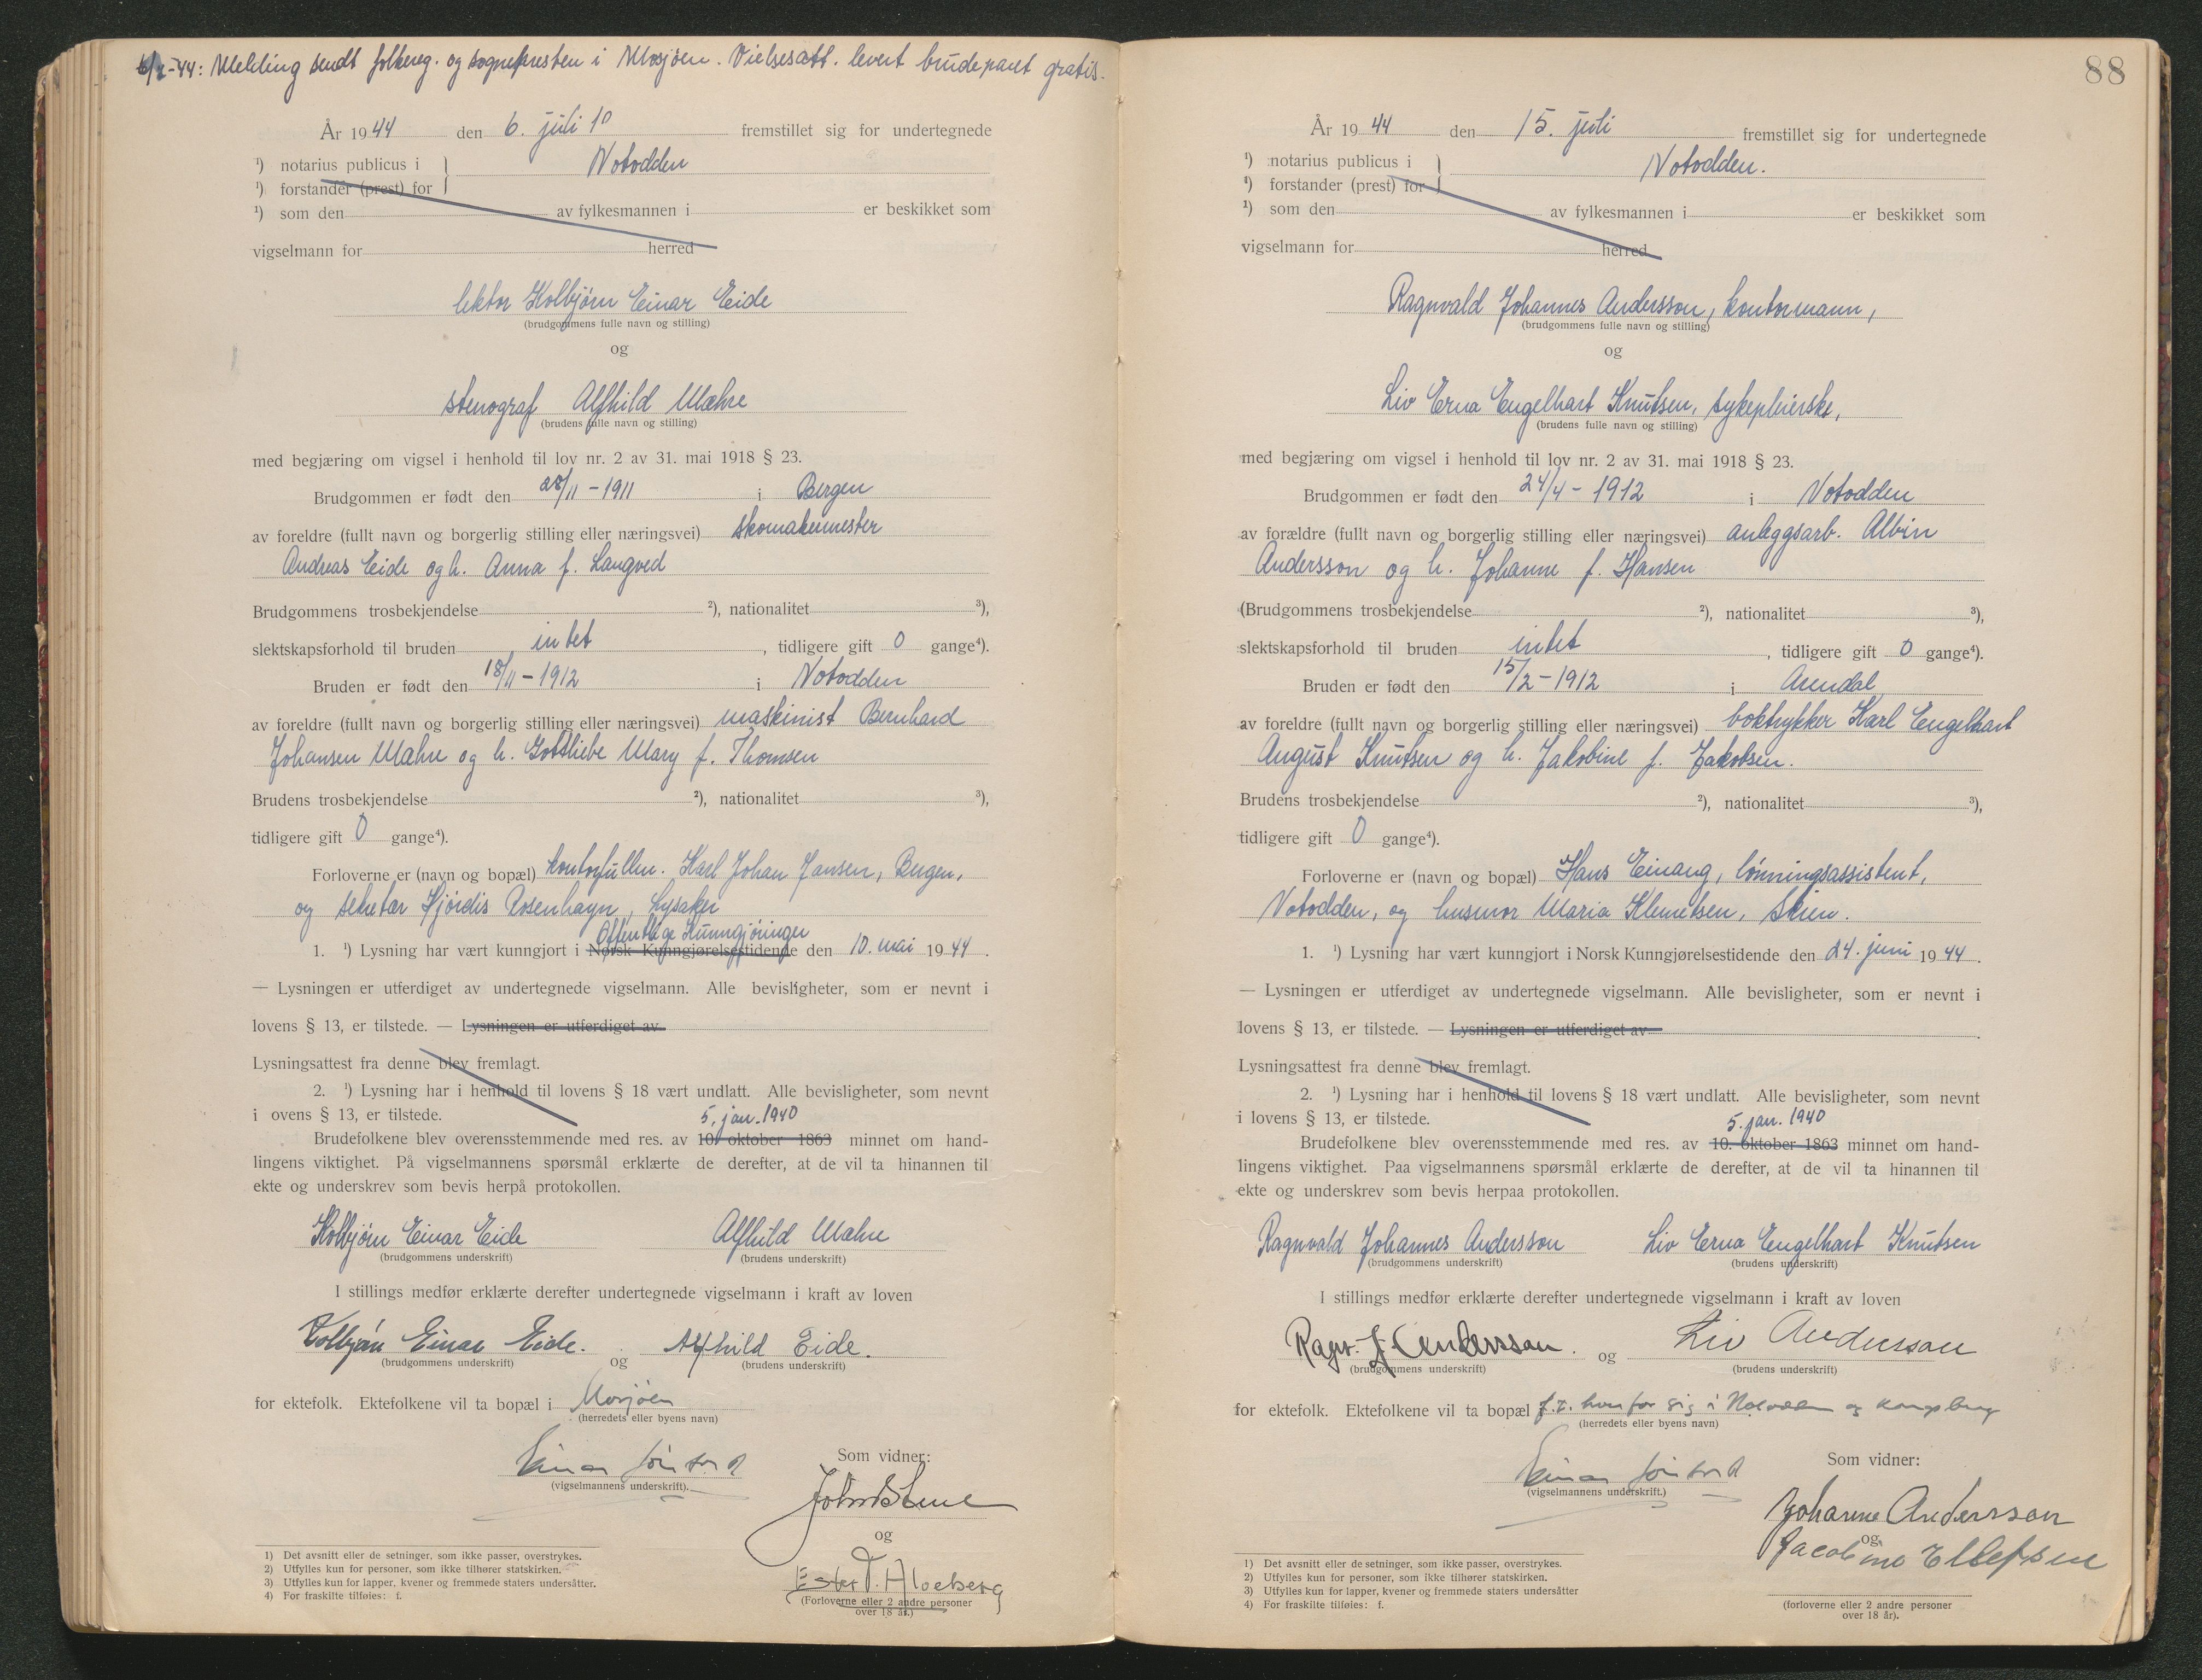 6/7-44: Melding sendt folkereg. og sognepresten i Mosjøen. Vielsesatt. levert brudeparet gratis.
År 1944 den 6. juli 10 fremstillet sig for undertegnede
¹) notarius publicus i } Notodden
¹) forstander (prest) for
¹) som den av fylkesmannen i er beskikket som
vigselmann for herred
lektor Kolbjørn Einar Eide
(brudgommens fulle navn og stilling)
og
stenograf Alfhild Mæhre
(brudens fulle navn og stilling)
med begjæring om vigsel i henhold til lov nr. 2 av 31. mai 1918 § 23.
Brudgommen er født den 28/11-1911 i Bergen
av foreldre (fullt navn og borgerlig stilling eller næringsvei) skomakermester
Andreas Eide og h. Anna f. Langved
Brudgommens trosbekjendelse ²), nationalitet ³),
slektskapsforhold til bruden intet, tidligere gift 0 gange⁴).
Bruden er født den 18/11-1912 i Notodden
av foreldre (fullt navn og borgerlig stilling eller næringsvei) maskinist Bernhard
Johansen Mæhre og h. Gottliebe Mary f. Thomsen
Brudens trosbekjendelse ²), nationalitet ³),
tidligere gift 0 gange⁴).
Forloverne er (navn og bopæl) kontorfullm. Karl Johan Jansen, Bergen,
og sekretær Hjørdis Rosenhayn, Lysaker
Offentlige Kunngjøringer
1. ¹) Lysning har vært kunngjort i Norsk Kunngjørelsestidende den 10. mai 1944.
— Lysningen er utferdiget av undertegnede vigselmann. Alle bevisligheter, som er nevnt i
lovens § 13, er tilstede. — Lysningen er utferdiget av
Lysningsattest fra denne blev fremlagt.
2. ¹) Lysning har i henhold til lovens § 18 vært undlatt. Alle bevisligheter, som nevnt
i ovens § 13, er tilstede. 5. jan. 1940
Brudefolkene blev overensstemmende med res. av 10. oktober 1863 minnet om hand-
lingens viktighet. På vigselmannens spørsmål erklærte de derefter, at de vil ta hinannen til
ekte og underskrev som bevis herpå protokollen.
Kolbjørn Einar Eide Alfhild Mæhre
(brudgommens underskrift) (brudens underskrift)
I stillings medfør erklærte derefter undertegnede vigselmann i kraft av loven
Kolbjørn Einar Eide. og Alfhild Eide.
(brudgommens underskrift) (brudens underskrift)
for ektefolk. Ektefolkene vil ta bopæl i Mosjøen
(herredets eller byens navn)
Einar
(vigselmannens underskrift).
Som vidner:
og
Ester
(Forloverne eller 2 andre personer
over 18 år.)
1) Det avsnitt eller de setninger, som ikke passer, overstrykes.
2) Utfylles kun for personer, som ikke tilhører statskirken.
3) Utfylles kun for lapper, kvener og fremmede staters undersåtter.
4) For fraskilte tilføies: f.
88
År 1944 den 15. juli fremstillet sig for undertegnede
¹) notarius publicus i } Notodden.
¹) forstander (prest) for
¹) som den av fylkesmannen i er beskikket som
vigselmann for herred
Ragnvald Johannes Andersson, kontormann,
(brudgommens fulle navn og stilling)
og
Liv Erna Engelhart Knutsen, sykepleierske,
(brudens fulle navn og stilling)
med begjæring om vigsel i henhold til lov nr. 2 av 31. mai 1918 § 23.
Brudgommen er født den 24/4-1912 i Notodden
av forældre (fullt navn og borgerlig stilling eller næringsvei) anleggsarb. Albin
Andersson og h. Johanne f. Hansen
(Brudgommens trosbekjendelse ²), nationalitet ³),
slektskapsforhold til bruden intet, tidligere gift 0 gange⁴).
Bruden er født den 15/2-1912 i Arendal
av foreldre (fullt navn og borgerlig stilling eller næringsvei) boktrykker Karl Engelhart
August Knutsen og h. Jakobine f. Jakobsen.
Brudens trosbekjendelse ²), nationalitet ³),
tidligere gift 0 gange⁴).
Forloverne er (navn og bopæl) Hans Einang, lønningsassistent,
Notodden, og husmor Maria Klemetsen, Skien.
1. ¹) Lysning har vært kunngjort i Norsk Kunngjørelsestidende den 24. juni 1944.
— Lysningen er utferdiget av undertegnede vigselmann. Alle bevisligheter, som er nevnt i
lovens § 13, er tilstede. — Lysningen er utferdiget av
Lysningsattest fra denne blev fremlagt.
2. ¹) Lysning har i henhold til lovens § 18 vært undlatt. Alle bevisligheter, som nevnt
i lovens § 13, er tilstede. 5. jan. 1940
Brudefolkene blev overensstemmende med res. av 10. oktober 1863 minnet om hand-
lingens viktighet. Paa vigselmannens spørsmål erklærte de derefter, at de vil ta hinannen til
ekte og underskrev som bevis herpaa protokollen.
Ragnvald Johannes Andersson Liv Erna Engelhart Knutsen
(brudgommens underskrift) (brudens underskrift)
I stillings medfør erklærte derefter undertegnede vigselmann i kraft av loven
Ragnv. J. Andersson. og Liv Andersson
(brudgommens underskrift) (brudens underskrift)
for ektefolk. Ektefolkene vil ta bopæl f.t. hver for sig i Notodden og Kongsberg
(herredets eller byens navn)
Einar
(vigselmannens underskrift.)
Som vidner:
Johanne Andersson
og
Jacobine Ellefsen
(forloverne eller 2 andre personer
over 18 år).
1) Det avsnitt eller de setninger, som ikke passer, overstrykes.
2) Utfylles kun for personer, som ikke tilhører statskirken.
3) Utfylles kun for lapper, kvener og fremmede staters undersåtter
4) For fraskilte tilføies: f.